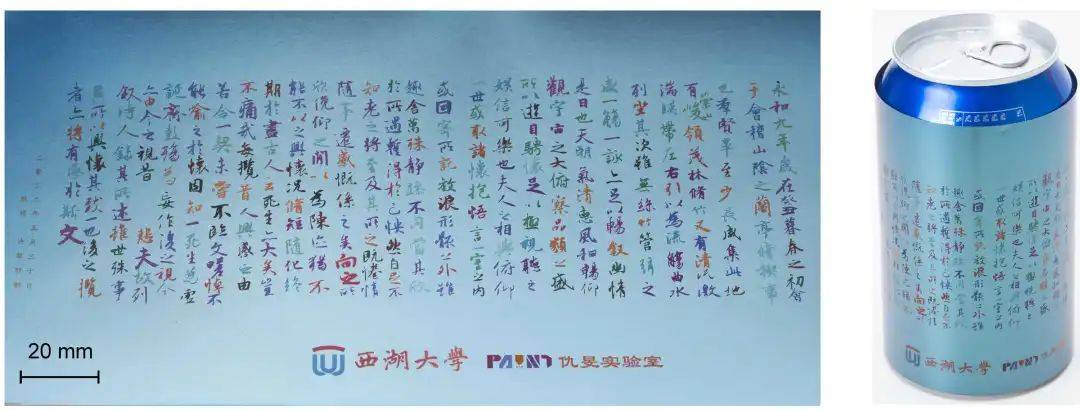 永和九年歲在癸丑暮春之初會
于會稽山陰之蘭亭脩稧事
也群賢畢至少長咸集此地
有崇山峻領茂林脩竹又有清流激
湍暎帶左右引以為流觴曲水
列坐其次雖無絲竹管弦之
盛一觴一詠亦足以暢敘幽情
是日也天朗氣清惠風和暢仰
觀宇宙之大俯察品類之盛
所以遊目騁懷足以極視聽之
娛信可樂也夫人之相與俯仰
一世或取諸懷抱悟言一室之內
或因寄所託放浪形骸之外雖
趣舍萬殊靜躁不同當其欣
於所遇暫得於己怏然自足不
知老之將至及其所之既惓情
隨事遷感慨係之矣向之所
欣俛仰之閒以為陳迹猶不
能不以之興懷況脩短隨化終
期於盡古人云死生亦大矣豈
不痛哉每攬昔人興感之由
若合一契未嘗不臨文嗟悼不
能喻之於懷固知一死生為虛
誕齊彭殤為妄作後之視今
亦由今之視昔 悲夫故列
敘時人錄其所述雖世殊事
異所以興懷其致一也後之攬
者亦將有感於斯文
西湖大學 PAINT 仇旻实验室
20 mm
西湖大學 PAINT